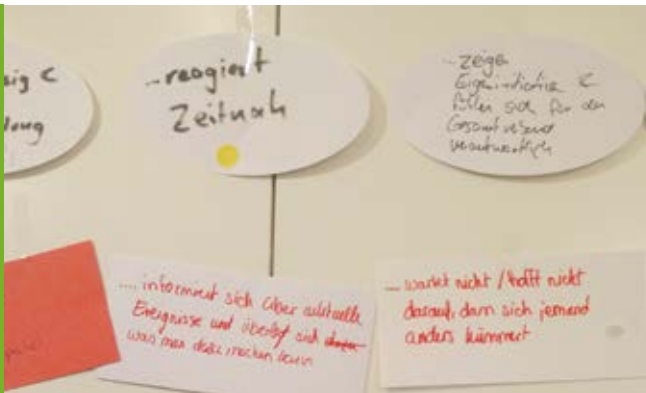 ...reagiert
Zeitnah
...zeigen
Eigeninitiative &
fühlen sich für den
Gesamtverband
verantwortlich
.... informiert sich über aktuelle
Ereignisse und überlegt sich
was man dazu machen kann
... wartet nicht / hofft nicht
darauf, dass sich jemand
anders kümmert